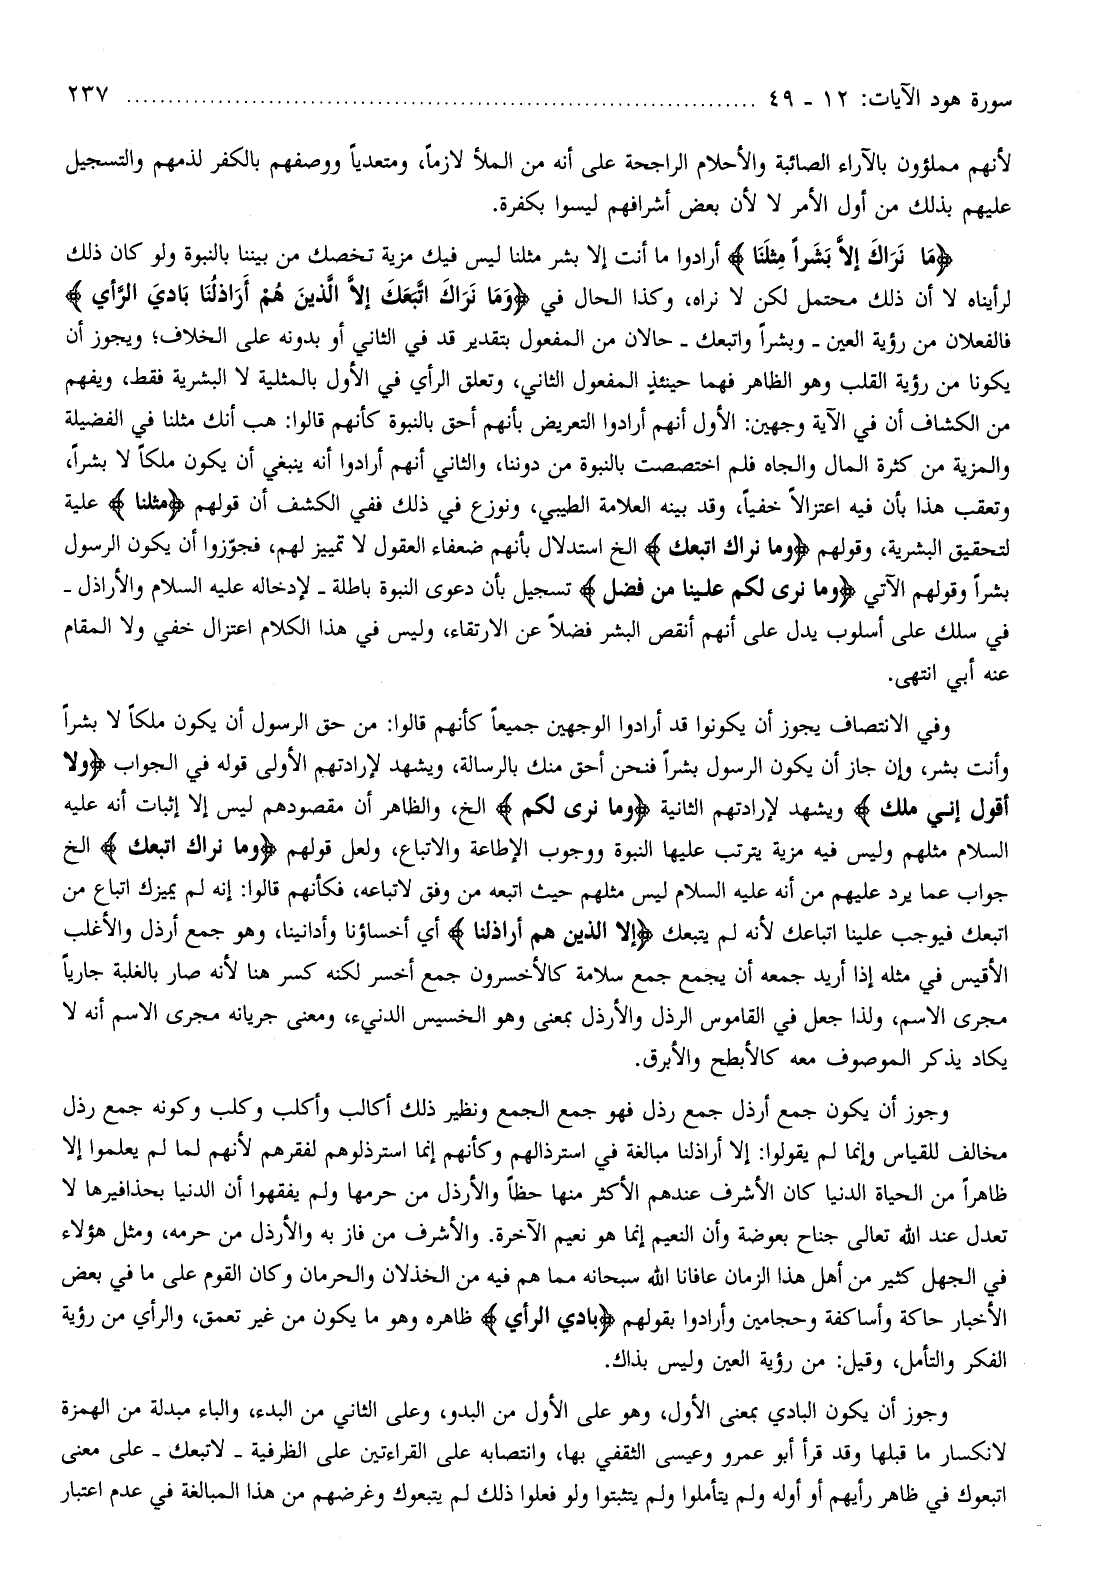 سورة هود الآيات: ١٢ ـ ٤٩ ........................................................................ ٢٣٧
لأنهم مملؤون بالآراء الصائبة والأحلام الراجحة على أنه من الملأ لازماً، ومتعدياً ووصفهم بالكفر لذمهم والتسجيل
عليهم بذلك من أول الأمر لا لأن بعض أشرافهم ليسوا بكفرة.
﴿مَا نَرَاكَ إلاَّ بَشَراً مِثلَنَا ﴾ أرادوا ما أنت إلا بشر مثلنا ليس فيك مزية تخصك من بيننا بالنبوة ولو كان ذلك
لرأيناه لا أن ذلك محتمل لكن لا نراه، وكذا الحال في ﴿وَمَا نَرَاكَ اتَّبَعَكَ إلاَّ الَّذينَ هُمْ أَرَاذلُنَا بَاديَ الرَّأي ﴾
فالفعلان من رؤية العين ـ وبشراً واتبعك ـ حالان من المفعول بتقدير قد في الثاني أو بدونه على الخلاف؛ ويجوز أن
يكونا من رؤية القلب وهو الظاهر فهما حينئذٍ المفعول الثاني، وتعلق الرأي في الأول بالمثلية لا البشرية فقط، ويفهم
من الكشاف أن في الآية وجهين: الأول أنهم أرادوا التعريض بأنهم أحق بالنبوة كأنهم قالوا: هب أنك مثلنا في الفضيلة
والمزية من كثرة المال والجاه فلم اختصصت بالنبوة من دوننا، والثاني أنهم أرادوا أنه ينبغي أن يكون ملكاً لا بشراً،
وتعقب هذا بأن فيه اعتزالاً خفياً، وقد بينه العلامة الطيبي، ونوزع في ذلك ففي الكشف أن قولهم ﴿مثلنا ﴾ علية
لتحقيق البشرية، وقولهم ﴿وما نراك اتبعك ﴾ الخ استدلال بأنهم ضعفاء العقول لا تمييز لهم، فجوّزوا أن يكون الرسول
بشراً وقولهم الآتي ﴿وما نرى لكم علينا من فضل ﴾ تسجيل بأن دعوى النبوة باطلة ـ لإدخاله عليه السلام والأراذل ـ
في سلك على أسلوب يدل على أنهم أنقص البشر فضلاً عن الارتقاء، وليس في هذا الكلام اعتزال خفي ولا المقام
عنه أبي انتهى.
وفي الانتصاف يجوز أن يكونوا قد أرادوا الوجهين جميعاً كأنهم قالوا: من حق الرسول أن يكون ملكاً لا بشراً
وأنت بشر، وإن جاز أن يكون الرسول بشراً فنحن أحق منك بالرسالة، ويشهد لإرادتهم الأولى قوله في الجواب ﴿ولا
أقول إني ملك ﴾ ويشهد لإرادتهم الثانية ﴿وما نرى لكم ﴾ الخ، والظاهر أن مقصودهم ليس إلا إثبات أنه عليه
السلام مثلهم وليس فيه مزية يترتب عليها النبوة ووجوب الإطاعة والاتباع، ولعل قولهم ﴿وما نراك اتبعك ﴾ الخ
جواب عما يرد عليهم من أنه عليه السلام ليس مثلهم حيث اتبعه من وفق لاتباعه، فكأنهم قالوا: إنه لم يميزك اتباع من
اتبعك فيوجب علينا اتباعك لأنه لم يتبعك ﴿إلا الذين هم أراذلنا ﴾ أي أخساؤنا وأدانينا، وهو جمع أرذل والأغلب
الأقيس في مثله إذا أريد جمعه أن يجمع جمع سلامة كالأخسرون جمع أخسر لكنه كسر هنا لأنه صار بالغلبة جارياً
مجرى الاسم، ولذا جعل في القاموس الرذل والأرذل بمعنى وهو الخسيس الدنيء، ومعنى جريانه مجرى الاسم أنه لا
يكاد يذكر الموصوف معه كالأبطح والأبرق.
وجوز أن يكون جمع أرذل جمع رذل فهو جمع الجمع ونظير ذلك أكالب وأكلب وكلب وكونه جمع رذل
مخالف للقياس وإنما لم يقولوا: إلا أراذلنا مبالغة في استرذالهم وكأنهم إنما استرذلوهم لفقرهم لأنهم لما لم يعلموا إلا
ظاهراً من الحياة الدنيا كان الأشرف عندهم الأكثر منها حظاً والأرذل من حرمها ولم يفقهوا أن الدنيا بحذافيرها لا
تعدل عند الله تعالى جناح بعوضة وأن النعيم إنما هو نعيم الآخرة. والأشرف من فاز به والأرذل من حرمه، ومثل هؤلاء
في الجهل كثير من أهل هذا الزمان عافانا الله سبحانه مما هم فيه من الخذلان والحرمان وكان القوم على ما في بعض
الأخبار حاكة وأساكفة وحجامين وأرادوا بقولهم ﴿بادي الرأي ﴾ ظاهره وهو ما يكون من غير تعمق، والرأي من رؤية
الفكر والتأمل، وقيل: من رؤية العين وليس بذاك.
وجوز أن يكون البادي بمعنى الأول، وهو على الأول من البدو، وعلى الثاني من البدء، والباء مبدلة من الهمزة
لانكسار ما قبلها وقد قرأ أبو عمرو وعيسى الثقفي بها، وانتصابه على القراءتين على الظرفية ـ لاتبعك ـ على معنى
اتبعوك في ظاهر رأيهم أو أوله ولم يتأملوا ولم يتثبتوا ولو فعلوا ذلك لم يتبعوك وغرضهم من هذا المبالغة في عدم اعتبار